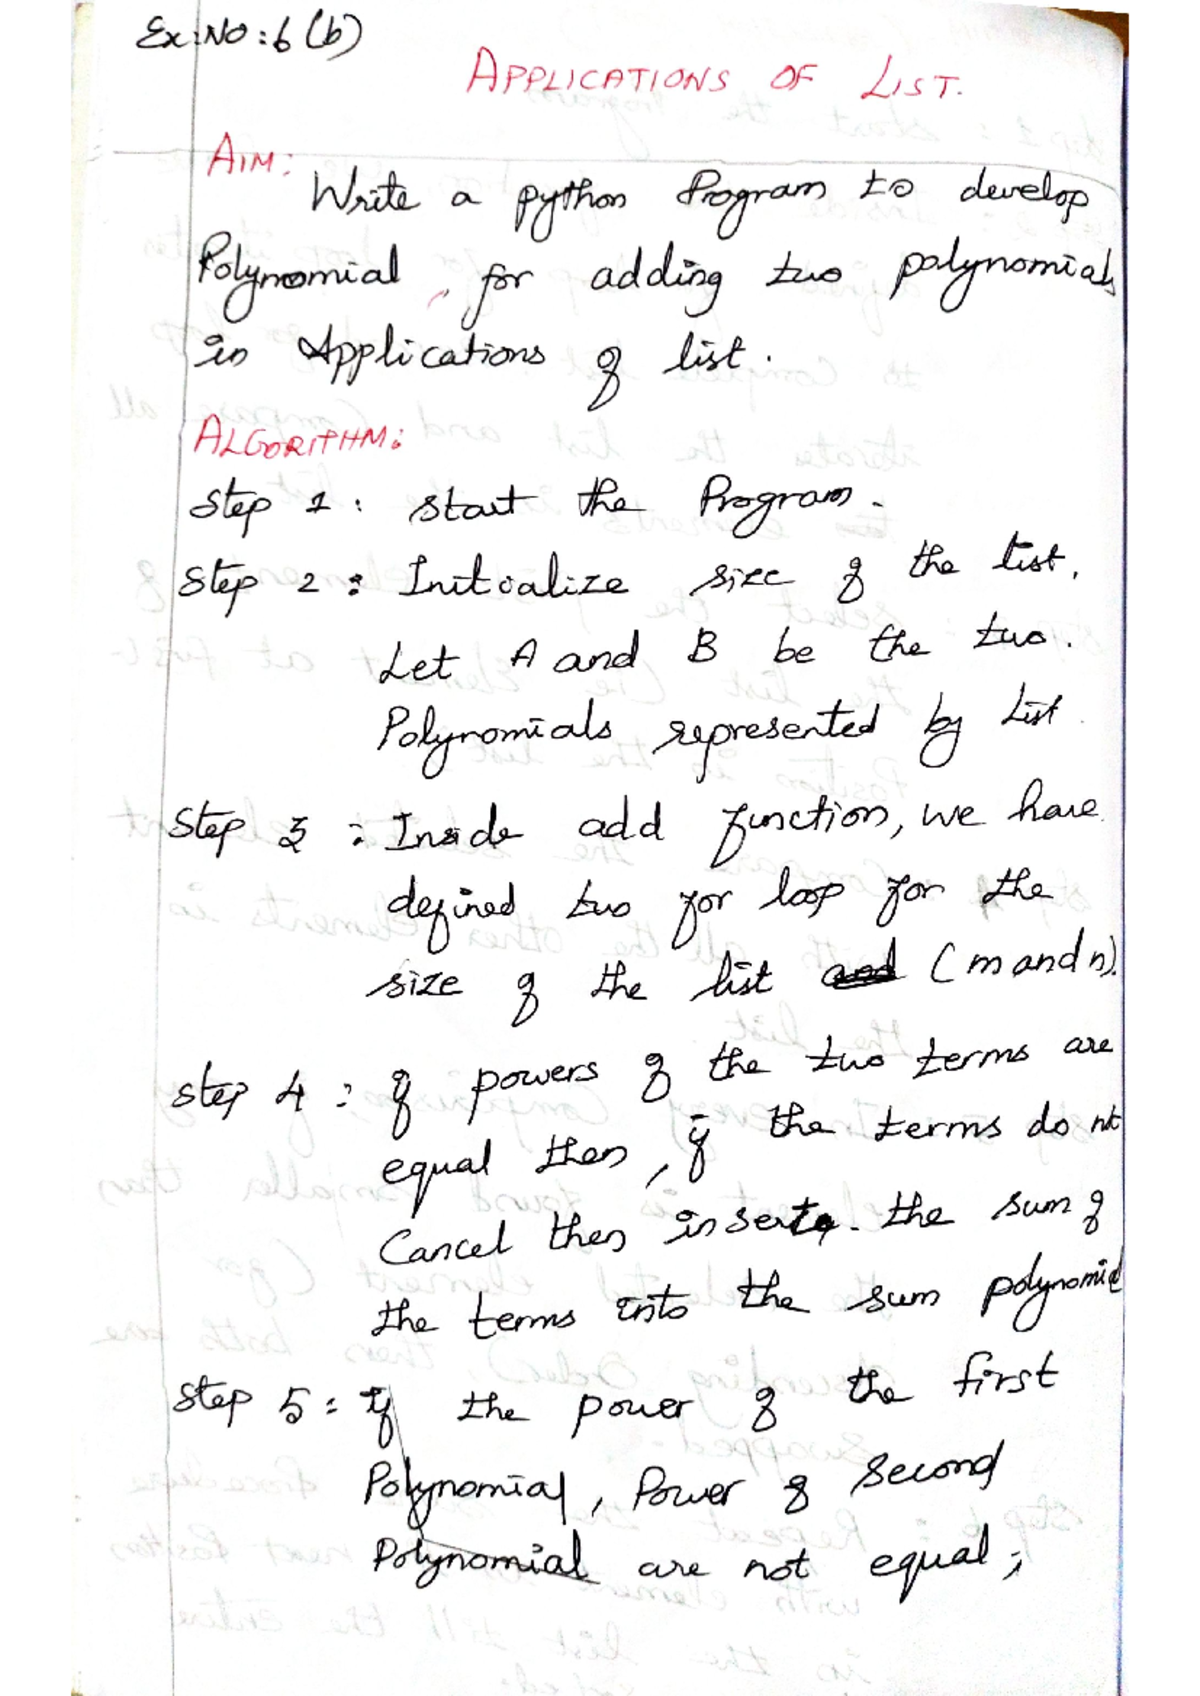 Ex:No:6(b)
APPLICATIONS OF LIST.
AIM:
Write a python Program to develop
Polynomial, for adding two polynomials
in Applications of list.
ALGORITHM:
Step 1: start the Program.
Step 2: Initialize size of the list.
Let A and B be the two.
Polynomials represented by list.
Step 3: Inside add function, we have
defined two for loop for the
size of the list and (m and n).
Step 4: If powers of the two terms are
equal then, if the terms do not
Cancel then insert. the sum of
the terms into the sum polynomial
Step 5: If the power of the first
Polynomial, Power of Second
Polynomial are not equal;